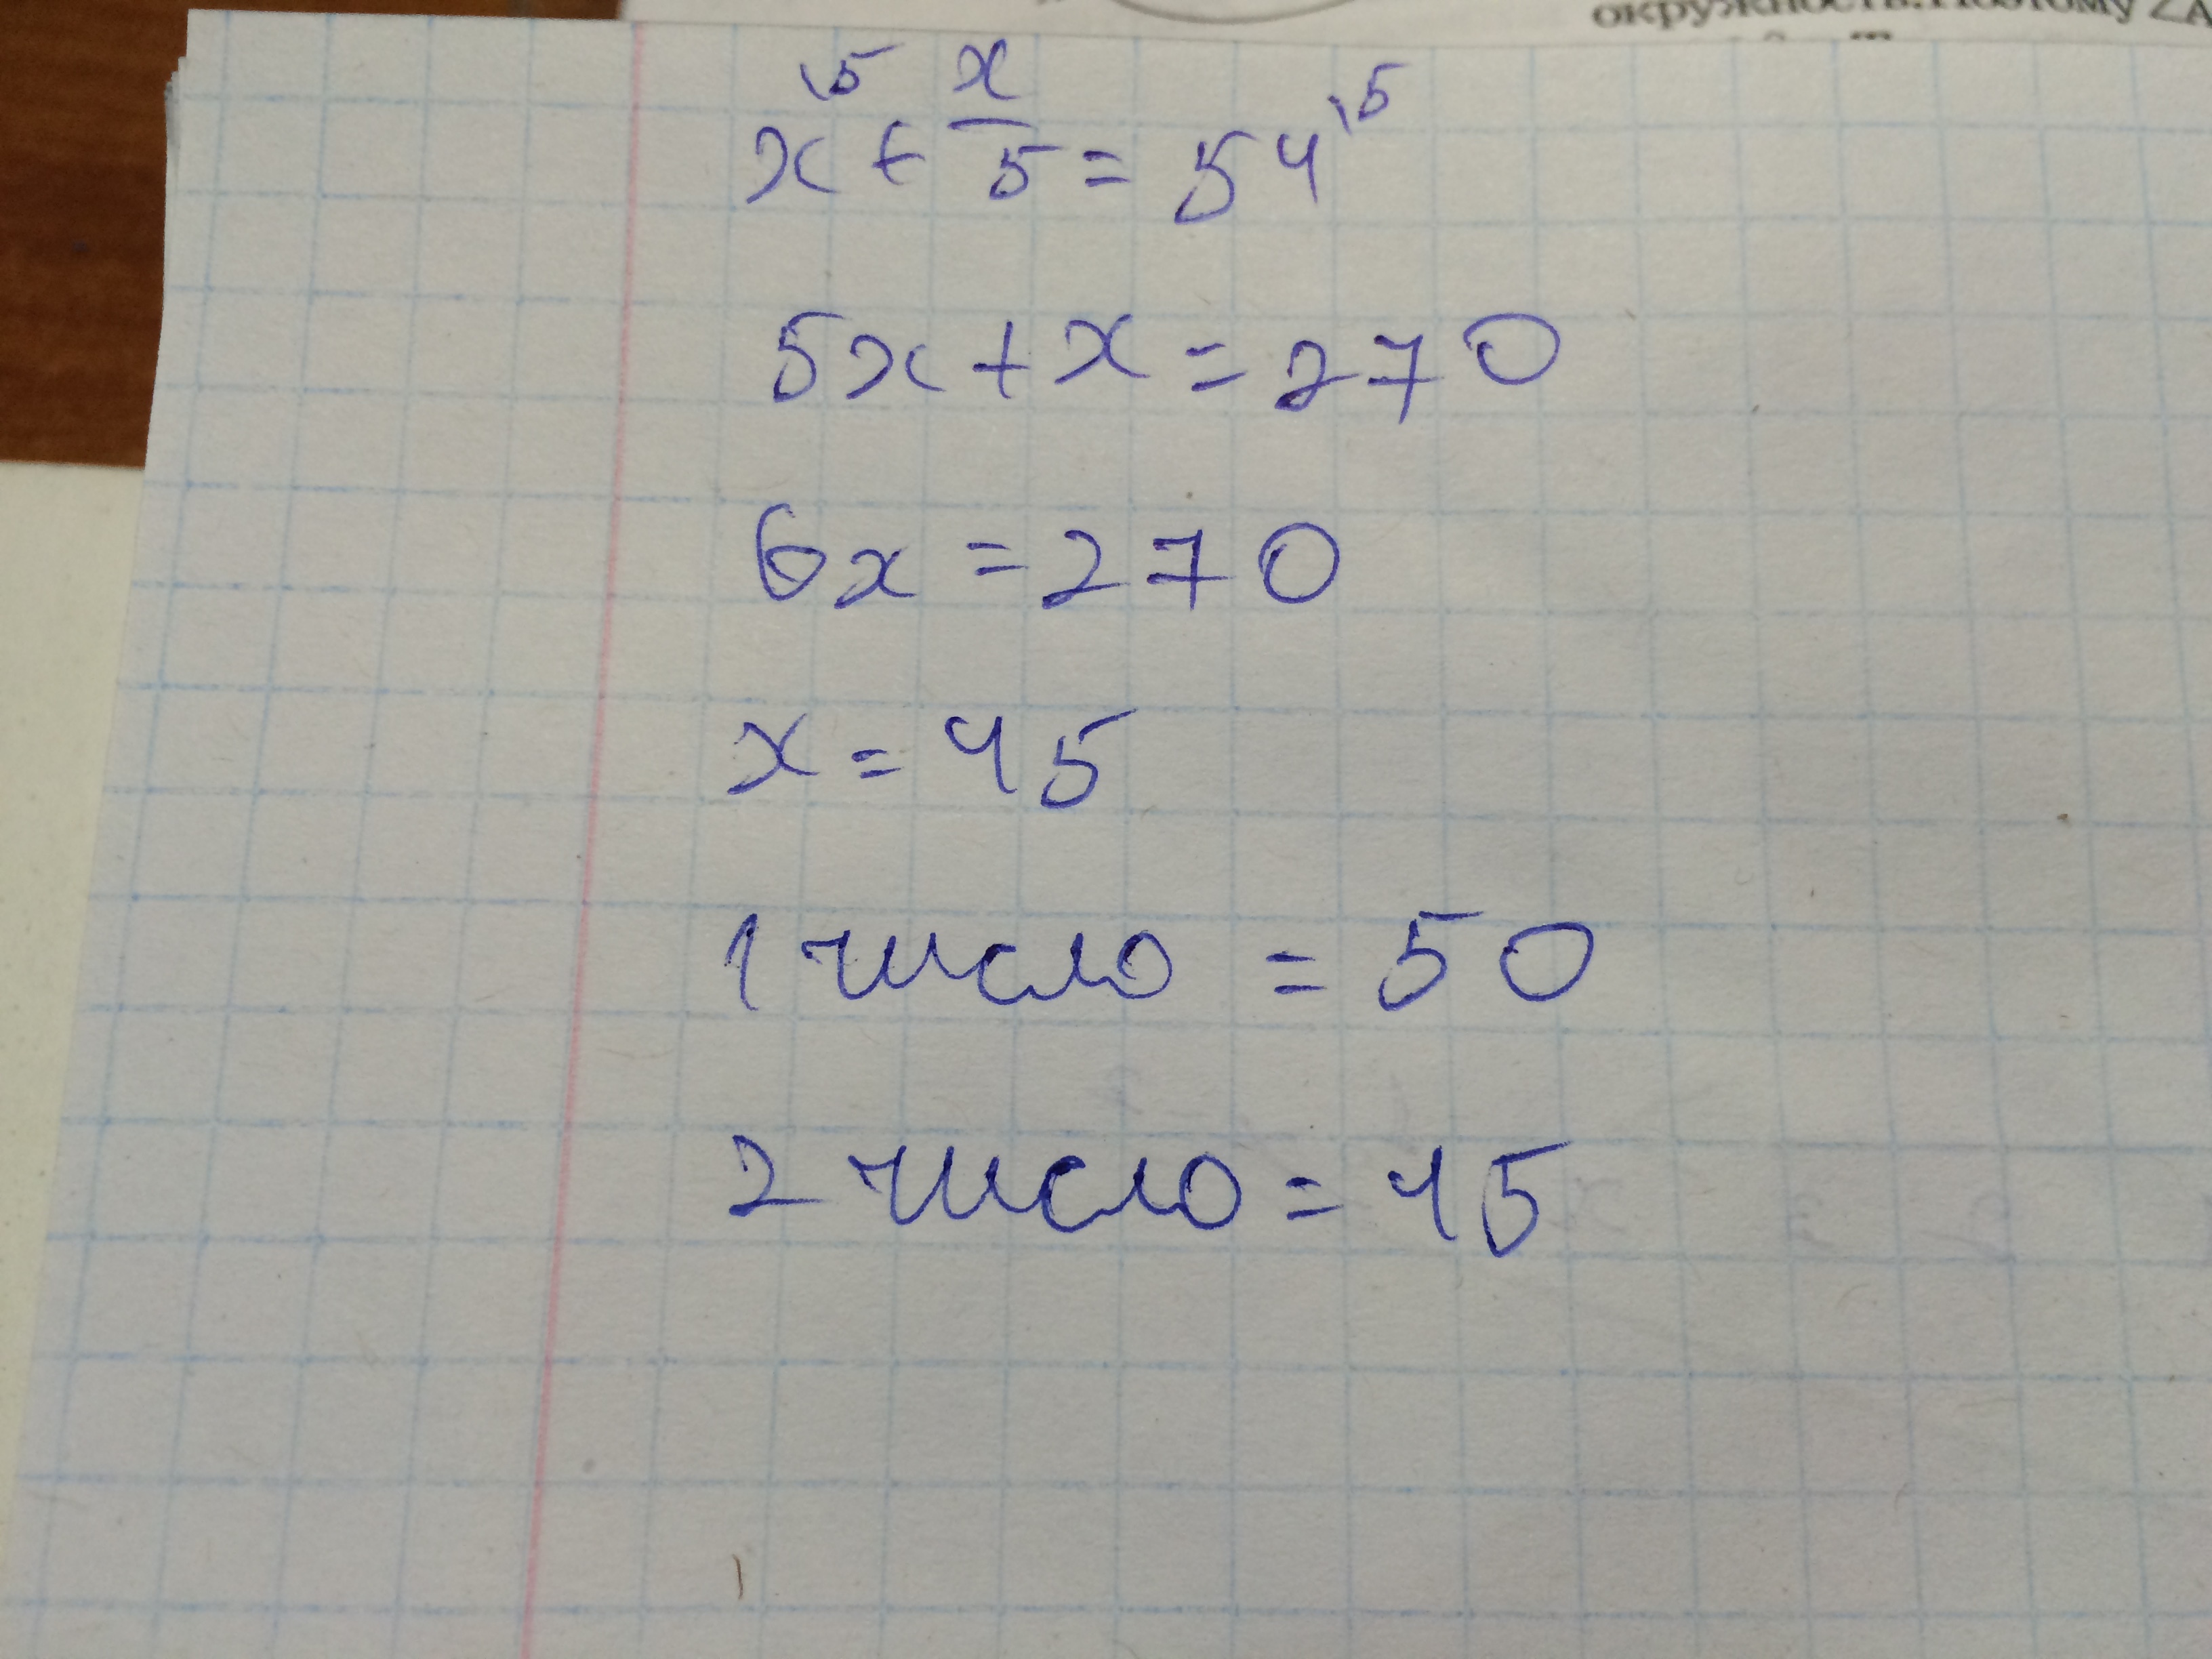 окружность. Поэтому ∠A
x\5 + x/5 = 54\5
5x + x = 270
6x = 270
x = 45
1 число = 50
2 число = 45